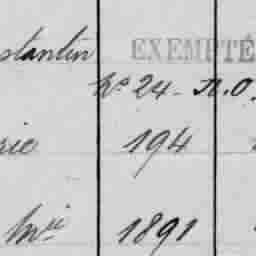 stantin EXEMPTÉ
No 24 - A.O.
rie 194
Mii 1891